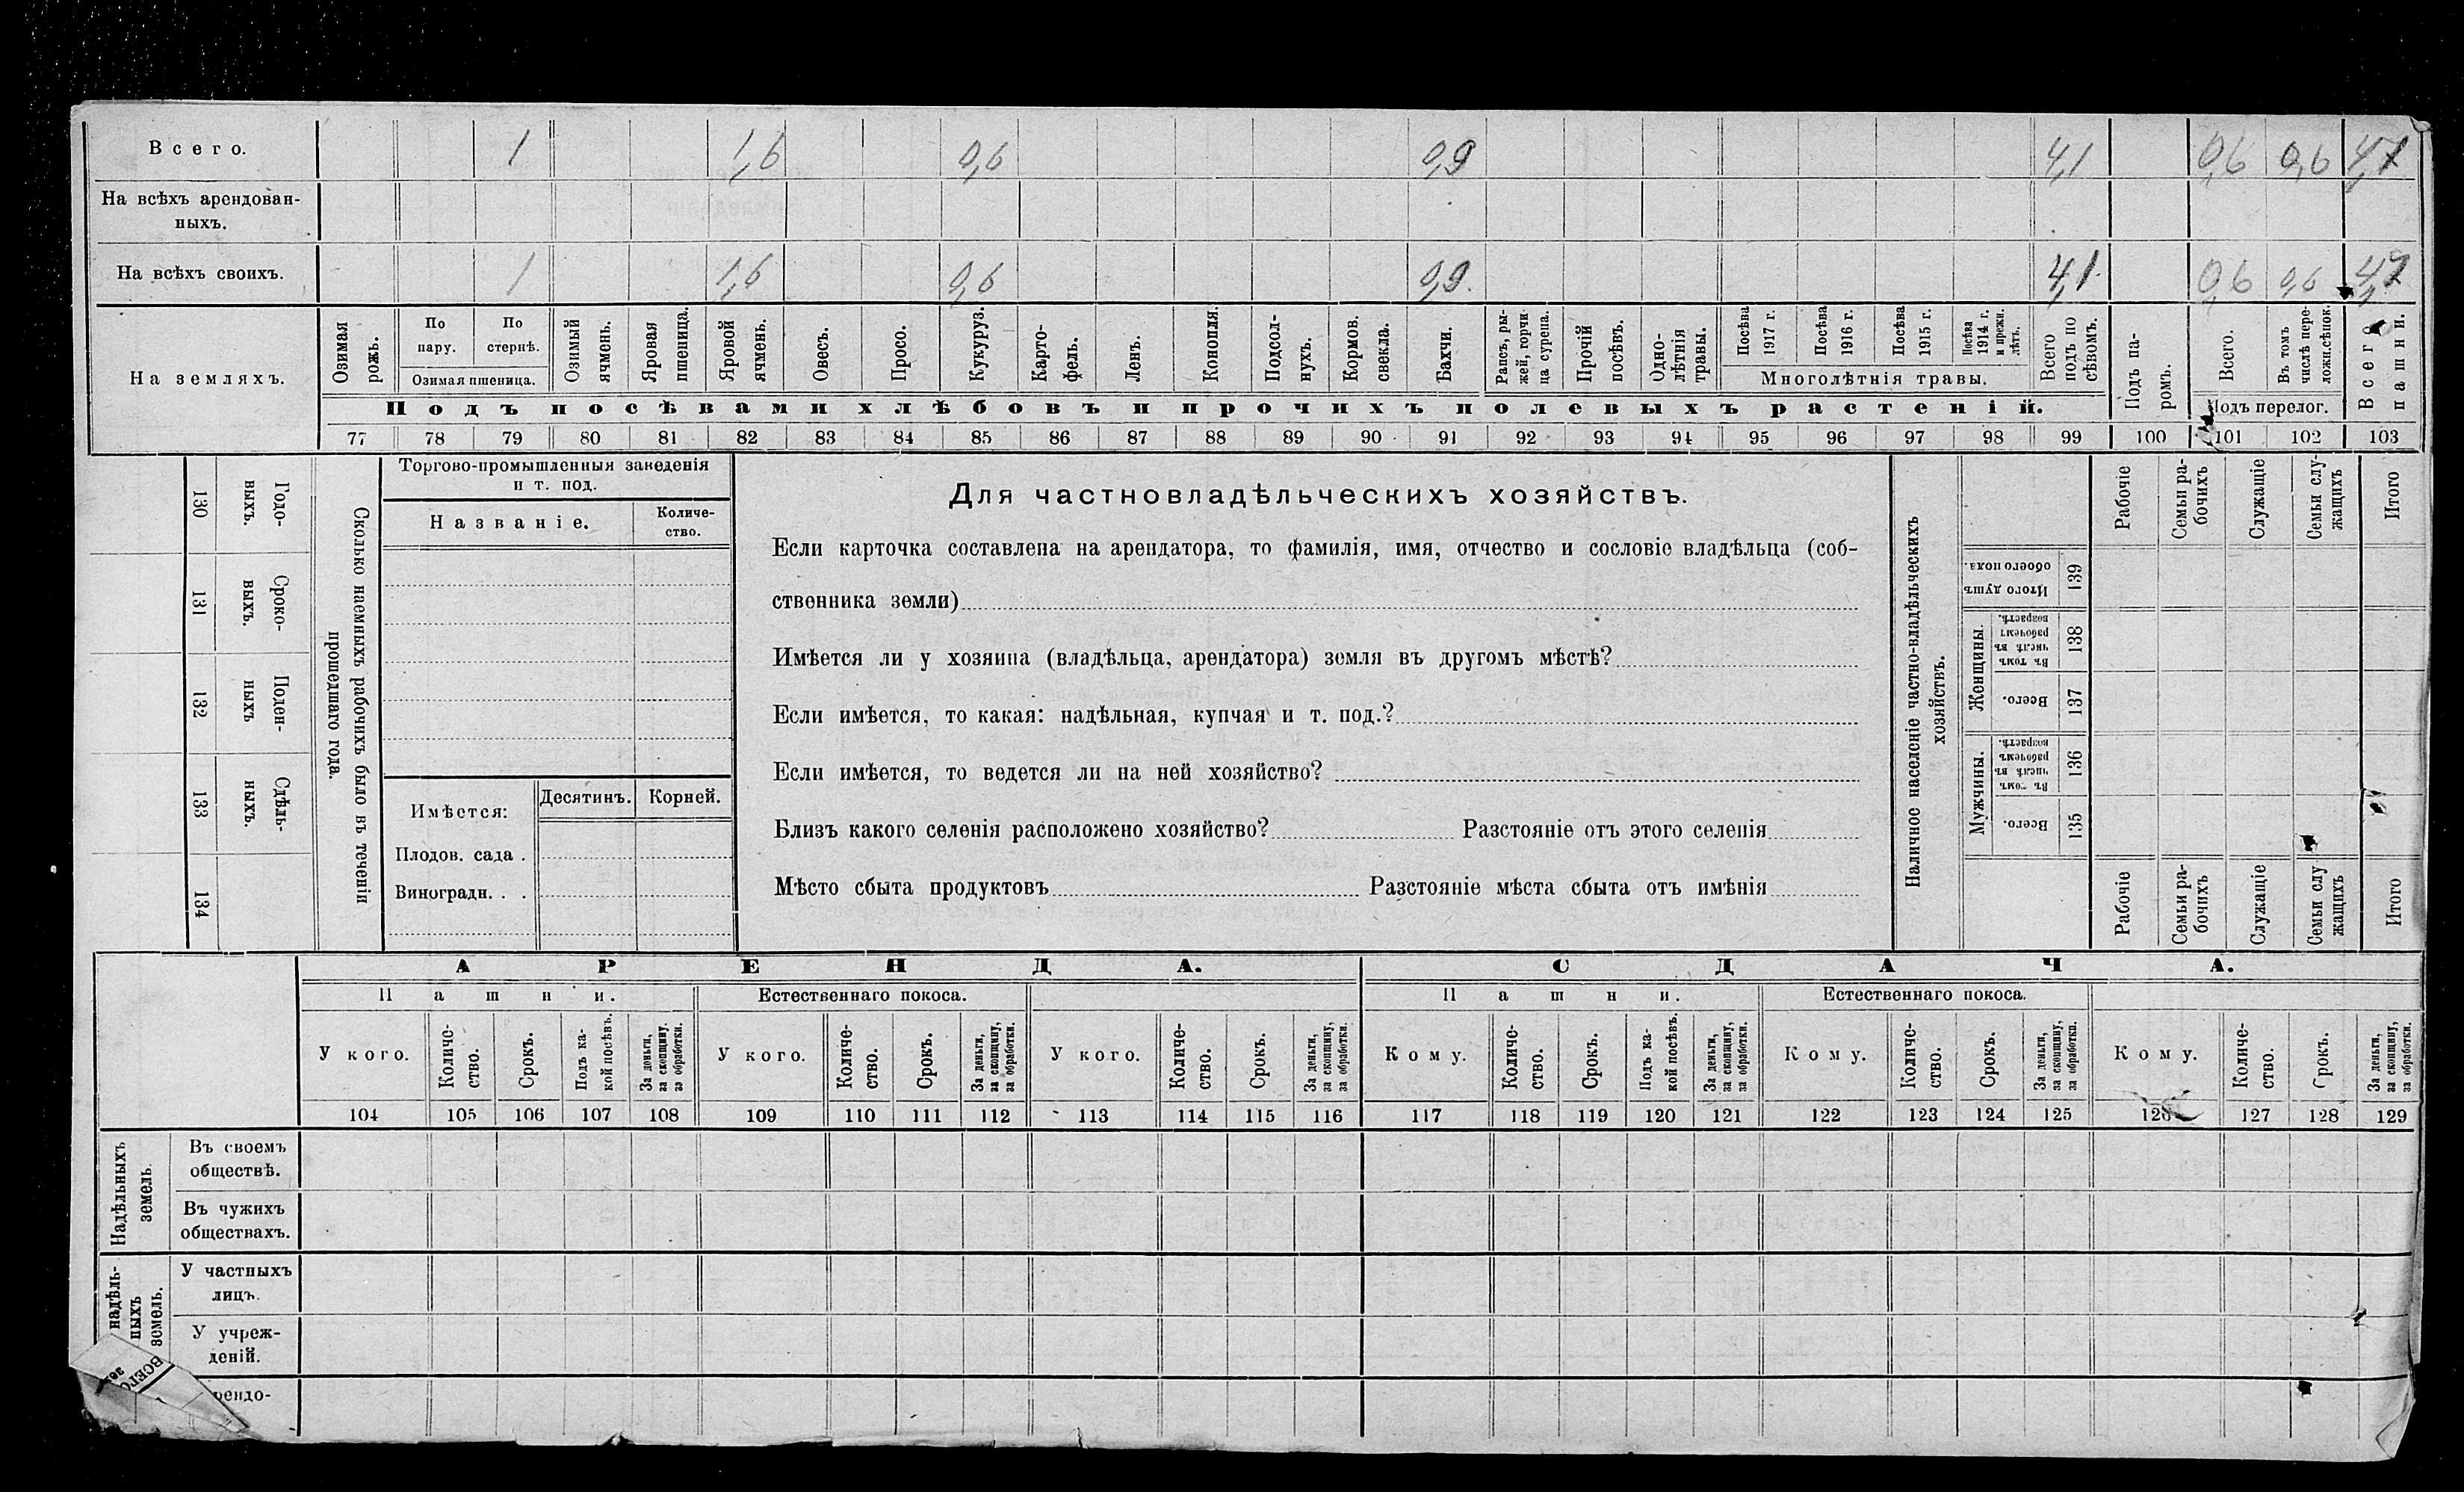 Всего. 1 1,6 0,6 0,9 4,1 0,6 0,6 4,7
На всѣхъ арендован-
ныхъ.
На всѣхъ своихъ. 1 1,6 0,6 0,9. 4,1. 0,6 0,6 4,7
На земляхъ.
Озимая рожь.
По пару.
По стернѣ.
Озимая пшеница.
Озимый ячмень.
Яровая пшеница.
Яровой ячмень.
Овесъ.
Просо.
Кукуруз.
Карто-
фель.
Ленъ.
Конопля.
Подсол-
нухъ.
Кормов.
свекла.
Бахчи.
Рапсъ, ры-
жей, горчи
ца сурепа.
Прочій
посѣвъ.
Одно-
лѣтнія
травы.
Посѣва
1917 г.
Посѣва
1916 г.
Посѣва
1915 г.
Посѣва
1914 г.
и прежн.
лѣтъ.
Многолѣтнія травы.
Всего
подъ по
сѣвомъ.
Подъ па-
ромъ.
Всего.
Въ томъ
числѣ пере-
ложн.сѣнок.
Подъ перелог.
Всего
пашни.
Подъ посѣвами хлѣбовъ и прочихъ полевыхъ растеній.
77 78 79 80 81 82 83 84 85 86 87 88 89 90 91 92 93 94 95 96 97 98 99 100 101 102 103
Годо-
выхъ.
130
Сроко-
выхъ.
131
Поден-
ныхъ
132
Сдѣль-
ныхъ.
133
134
Сколько наемныхъ рабочихъ было въ теченіи
прошедшаго года.
Торгово-промышленныя заведенія
и т. под.
Названіе.
Количе-
ство.
Имѣется:
Десятинъ. Корней.
Плодов. сада .
Виноградн. . .
Для частновладѣльческихъ хозяйствъ.
Если карточка составлена на арендатора, то фамилія, имя, отчество и сословіе владѣльца (соб-
ственника земли)
Имѣется ли у хозяина (владѣльца, арендатора) земля въ другомъ мѣстѣ?
Если имѣется, то какая: надѣльная, купчая и т. под.?
Если имѣется, то ведется ли на ней хозяйство?
Близъ какого селенія расположено хозяйство? Разстояніе отъ этого селенія
Мѣсто сбыта продуктовъ Разстояніе мѣста сбыта отъ имѣнія
Наличное населеніе частно-владѣльческихъ
хозяйствъ.
Рабочіе
Семьи ра-
бочихъ
Служащіе
Семьи слу-
жащихъ
Итого
Итого душъ
обоего пола.
139
Женщины.
Въ томъ
числѣ въ
рабочемъ
возрастѣ.
138
Всего.
137
Мужчины.
Въ томъ
числѣ въ
рабочемъ
возрастѣ.
136
Всего.
135
Рабочіе
Семьи ра-
бочихъ
Служащіе
Семьи слу
жащихъ
Итого
АРЕНДА. СДАЧА.
Пашни. Естественнаго покоса. Пашни. Естественнаго покоса.
У кого.
Количе-
ство.
Срокъ.
Подъ ка-
кой посѣвъ.
За деньги,
за скопщину,
за обработки.
У кого.
Количе-
ство.
Срокъ.
За деньги,
за скопщину,
за обработки.
У кого.
Количе-
ство.
Срокъ.
За деньги,
за скопщину,
за обработки.
Кому.
Количе-
ство.
Срокъ.
Подъ ка-
кой посѣвъ.
За деньги,
за скопщину,
за обработки.
Кому.
Количе-
ство.
Срокъ.
За деньги,
за скопщину,
за обработки.
Кому.
Количе-
ство.
Срокъ.
За деньги,
за скопщину,
за обработки.
104 105 106 107 108 109 110 111 112 113 114 115 116 117 118 119 120 121 122 123 124 125 126 127 128 129
Надѣльныхъ
земель.
Въ своемъ
обществѣ.
Въ чужихъ
обществахъ.
надѣль-
ныхъ
земель.
У частныхъ
лицъ.
У учреж-
деній.
ВСЕГО
рендо-